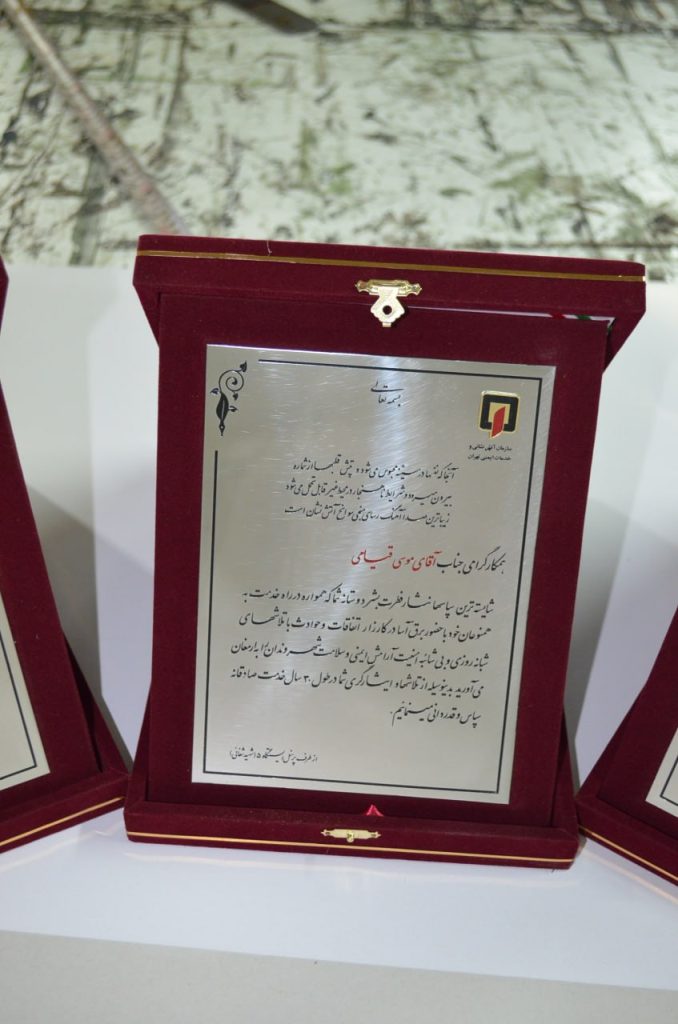 بسمه تعالی
سازمان آتش نشانی و
خدمات ایمنی تهران
آنجا که نفسها در سینه محبوس می شود و تپش قلبها از شماره
بیرون میرود و شرایط ناهنجار در محیط غیر قابل تحمل می شود
زیباترین صدا آهنگ رسای منجی سوانح آتش نشان است
همکار گرامی جناب آقای موسی قیامی
شایسته ترین سپاسها نثار فطرت بشر دوستانه شما که همواره در راه خدمت به
همنوعان خود با حضور برق آسا در کارزار اتفاقات و حوادث با تلاشهای
شبانه روزی و بی شائبه امنیت آرامش ایمنی و سلامت شهروندان را به ارمغان
می آورید بدینوسیله از تلاشها و ایثارگری شما در طول ۳۰ سال خدمت صادقانه
سپاس و قدردانی مینمائیم.
از طرف پرسنل ایستگاه ۵ (شهید شعاعی)